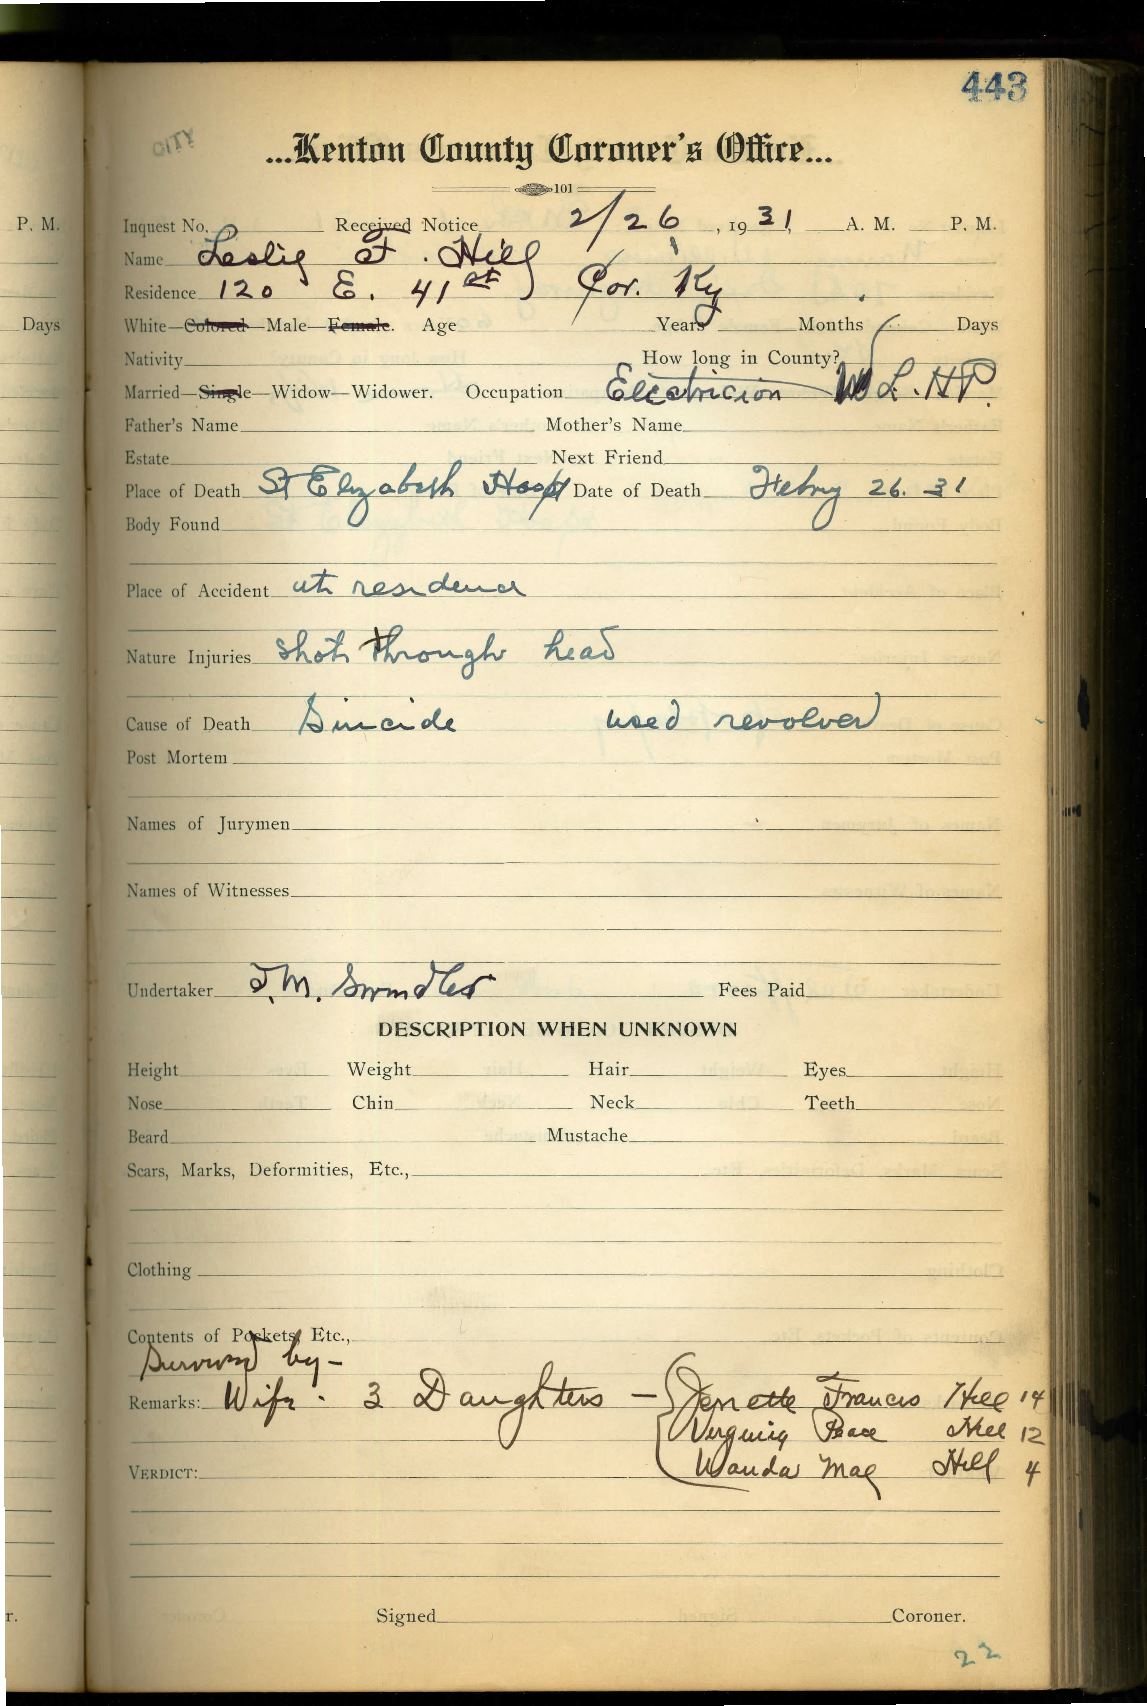 443
CITY
...Kenton County Coroner's Office...
101
P. M.
Inquest No. Received Notice 2/26, 1931, A. M. P. M.
Name Leslie F. Hill
Residence 120 E. 41 st Cov. Ky
Days
White—Colored—Male—Female. Age Years Months Days
Nativity How long in County?
Married—Single—Widow—Widower. Occupation Electrician L. HP.
Father's Name Mother's Name
Estate Next Friend
Place of Death St Elizabeth Hospt Date of Death Febry 26. 31
Body Found
Place of Accident at residence
Nature Injuries shot through head
Cause of Death Suicide used revolver
Post Mortem
Names of Jurymen
Names of Witnesses
Undertaker J. M. Swindler Fees Paid
DESCRIPTION WHEN UNKNOWN
Height Weight Hair Eyes
Nose Chin Neck Teeth
Beard Mustache
Scars, Marks, Deformities, Etc.,
Clothing
Contents of Pockets, Etc.,
Survived by—
Remarks: Wife. 3 Daughters — Jenette Francis Hill 14
Virginia Hill 12
Wanda Mae Hill 4
VERDICT:
r.
Signed Coroner.
22